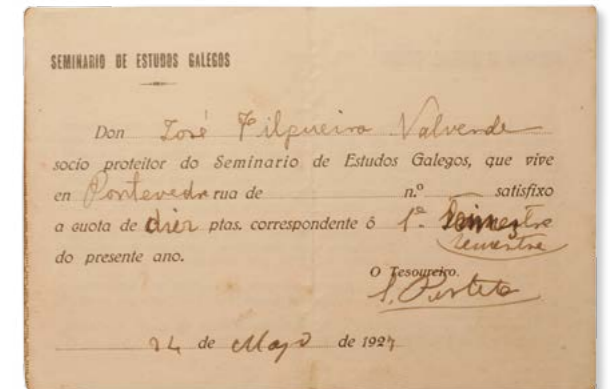 SEMINARIO DE ESTUDOS GALEGOS
Don José Filgueira Valverde
socio proteitor do Seminario de Estudos Galegos, que vive
en Pontevedra rua de n.º satisfixo
a cuota de diez ptas. correspondente ó 1º
semestre
do presente ano.
O Tesoureiro.
de Mayo de 1927